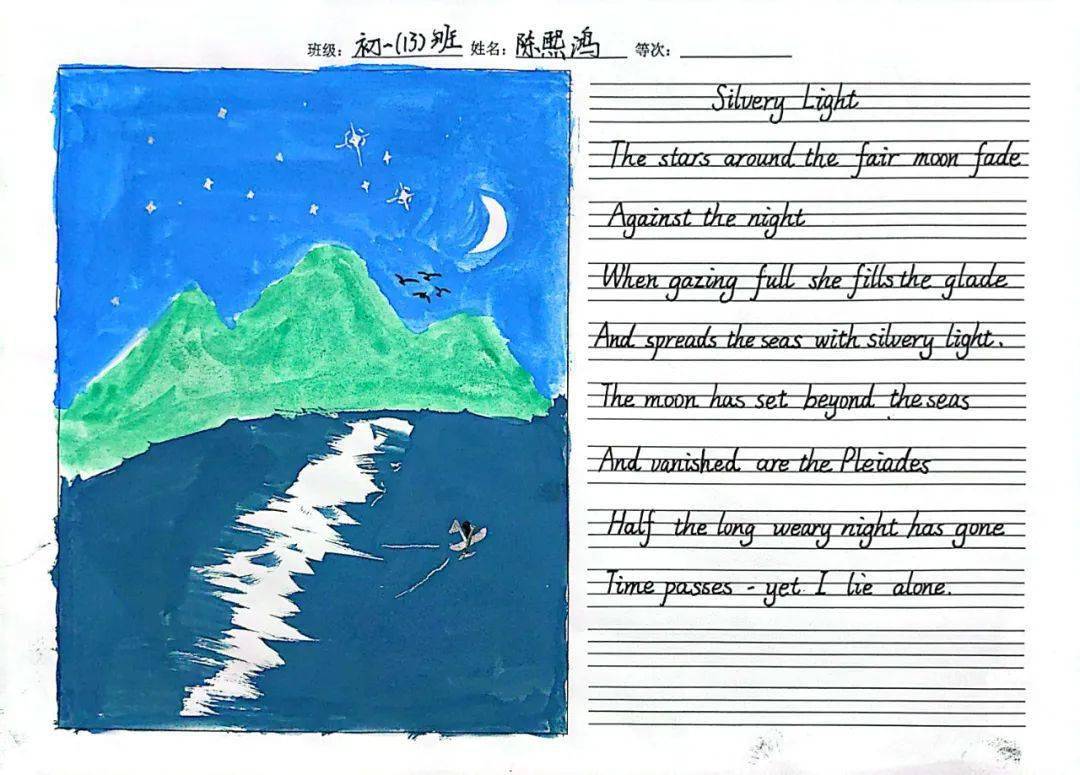 班级: 初一(13)班 姓名: 陈熙鸿 等次:
Silvery Light
The stars around the fair moon fade
Against the night
When gazing full she fills the glade
And spreads the seas with silvery light.
The moon has set beyond the seas
And vanished are the Pleiades
Half the long weary night has gone
Time passes - yet I lie alone.